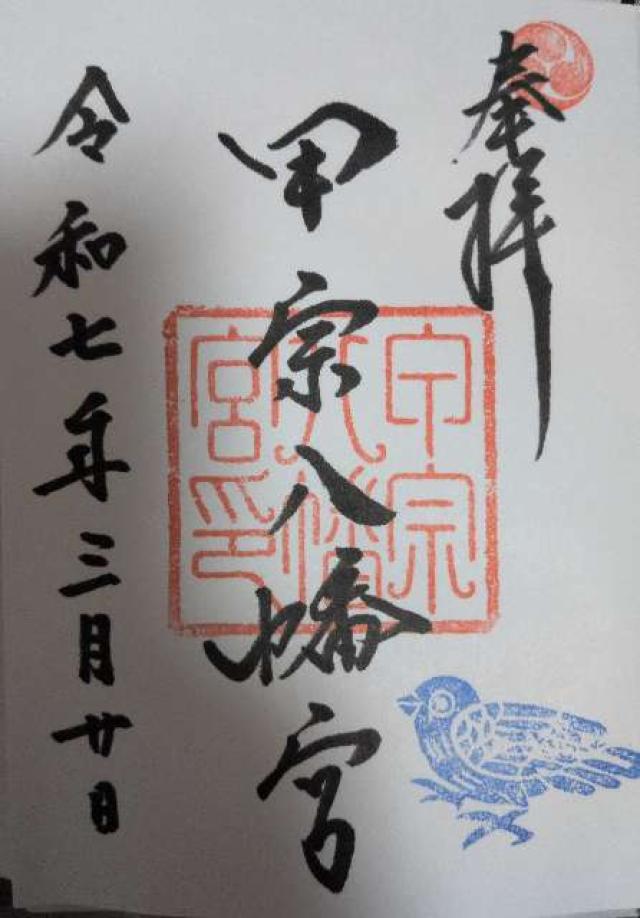 奉拝
甲宗八幡宮
甲宗八幡宮印
令和七年三月廿日